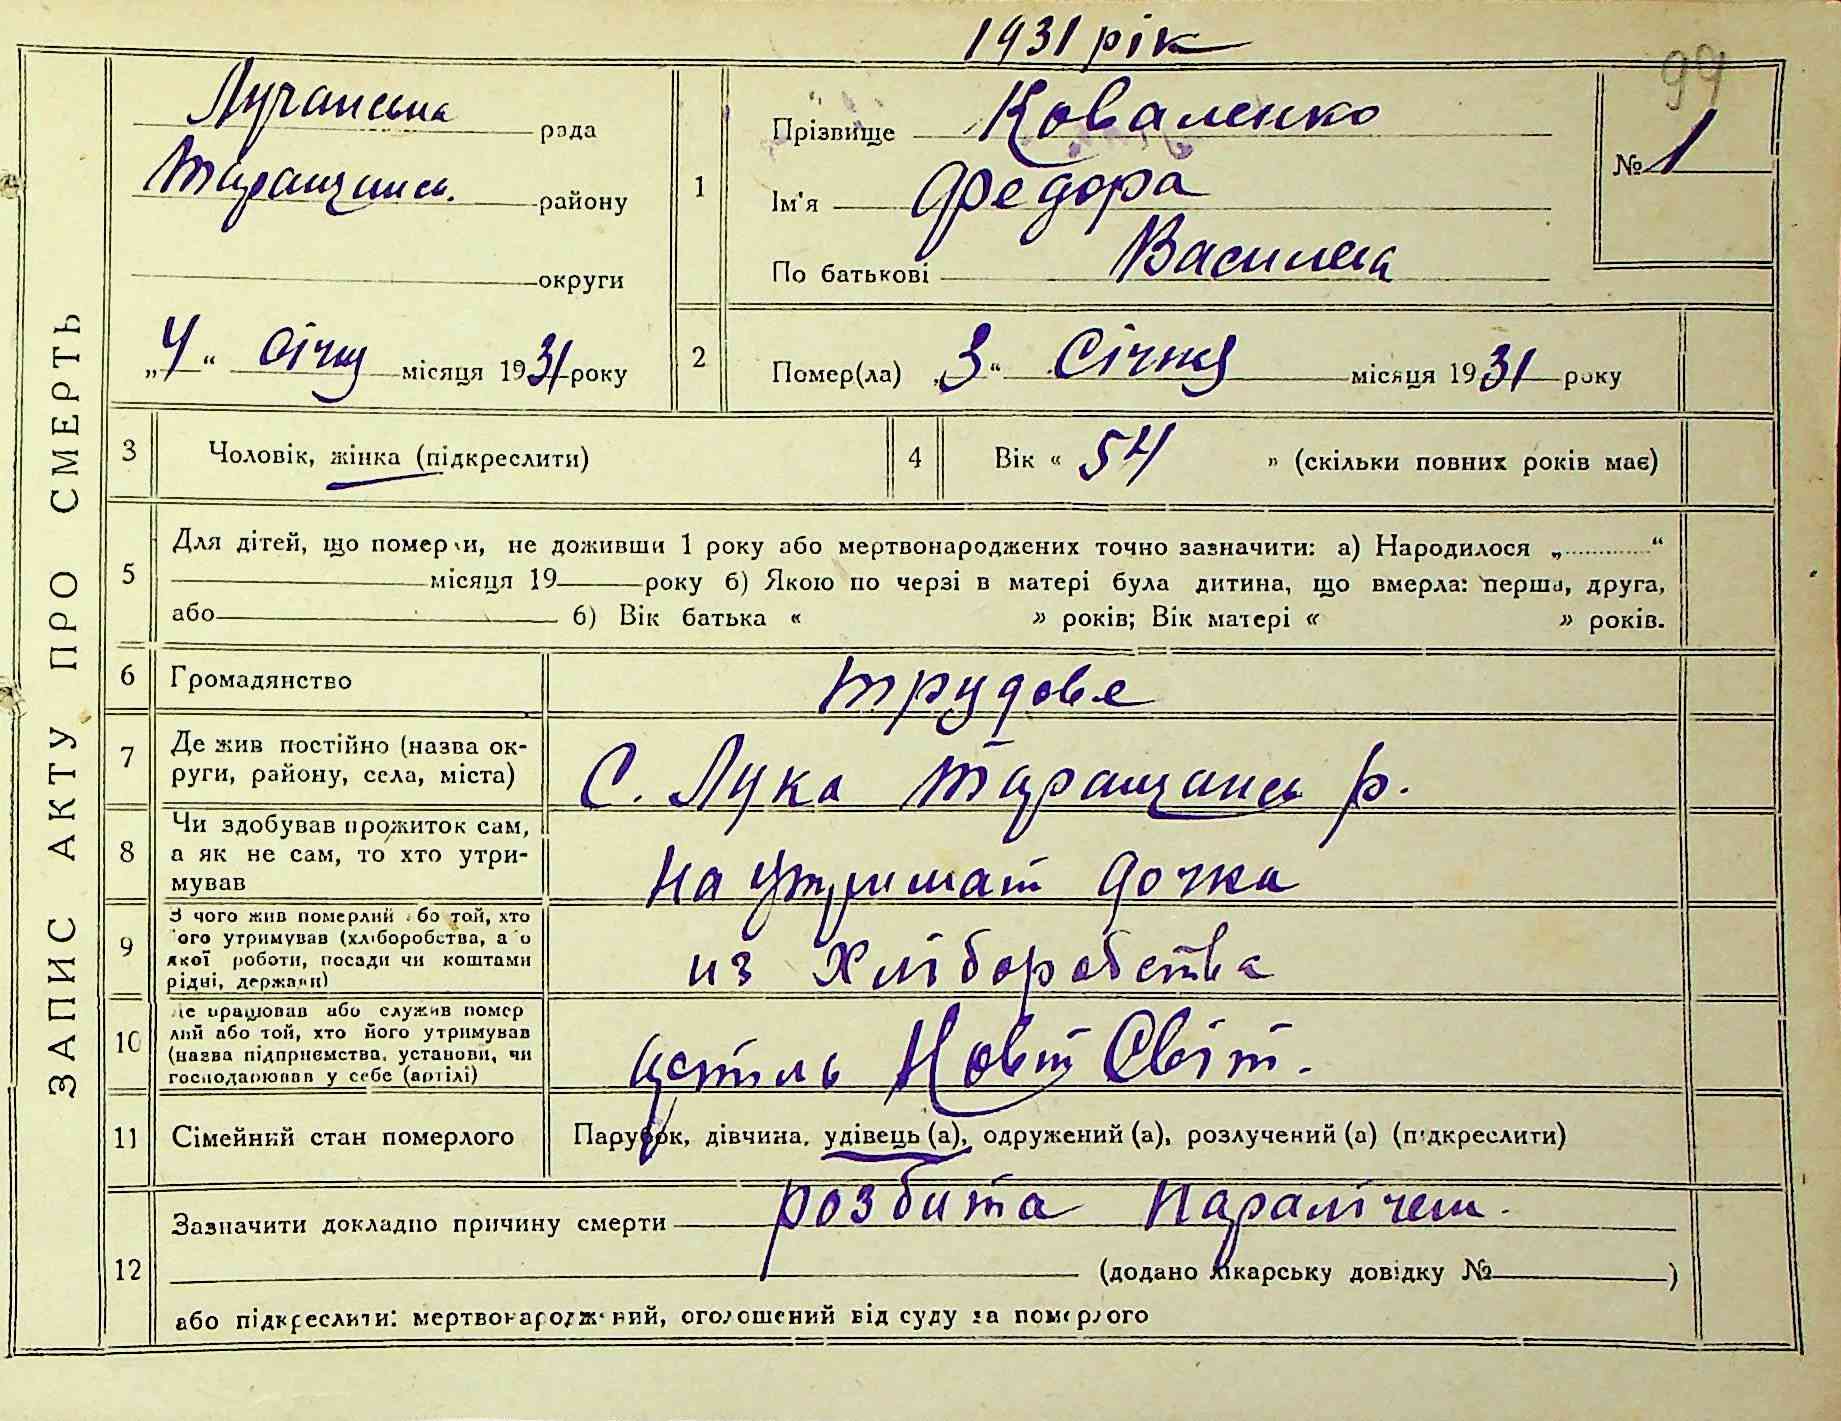 1931 рік
99
ЗАПИС АКТУ ПРО СМЕРТЬ
Лучанська рада
Таращансь. району
округи
„4“ січня місяця 1931 року
1
Прізвище Коваленко
Ім'я Федора
По батькові
№ 1
2
Помер(ла) „3“ Січня місяця 1931 року
3
Чоловік, жінка (підкреслити)
4
Вік « 54 » (скільки повних років має)
5
Для дітей, що померли, не доживши 1 року або мертвонароджених точно зазначити: а) Народилося „ “
місяця 19 року б) Якою по черзі в матері була дитина, що вмерла: перша, друга,
або б) Вік батька « » років; Вік матері « » років.
6
Громадянство
трудове
7
Де жив постійно (назва ок-
руги, району, села, міста)
С. Лука Таращансь р.
8
Чи здобував прожиток сам,
а як не сам, то хто утри-
мував
на дочка
9
З чого жив померлий або той, хто
його утримував (хліборобства, або
якої роботи, посади чи коштами
рідні, держави)
из Хліборобства
10
Де працював або служив помер
лий або той, хто його утримував
(назва підприємства, установи, чи
господарював у себе (артілі)
Світ.
11
Сімейний стан померлого
Парубок, дівчина, удівець (а), одружений (а), розлучений (а) (підкреслити)
12
Зазначити докладно причину смерти розбита паралічем.
(додано лікарську довідку № )
або підкреслити: мертвонароджений, оголошений від суду за померлого